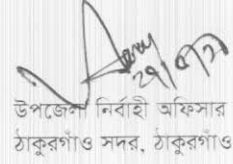 উপজেলা নির্বাহী অফিসার
ঠাকুরগাঁও সদর, ঠাকুরগাঁও